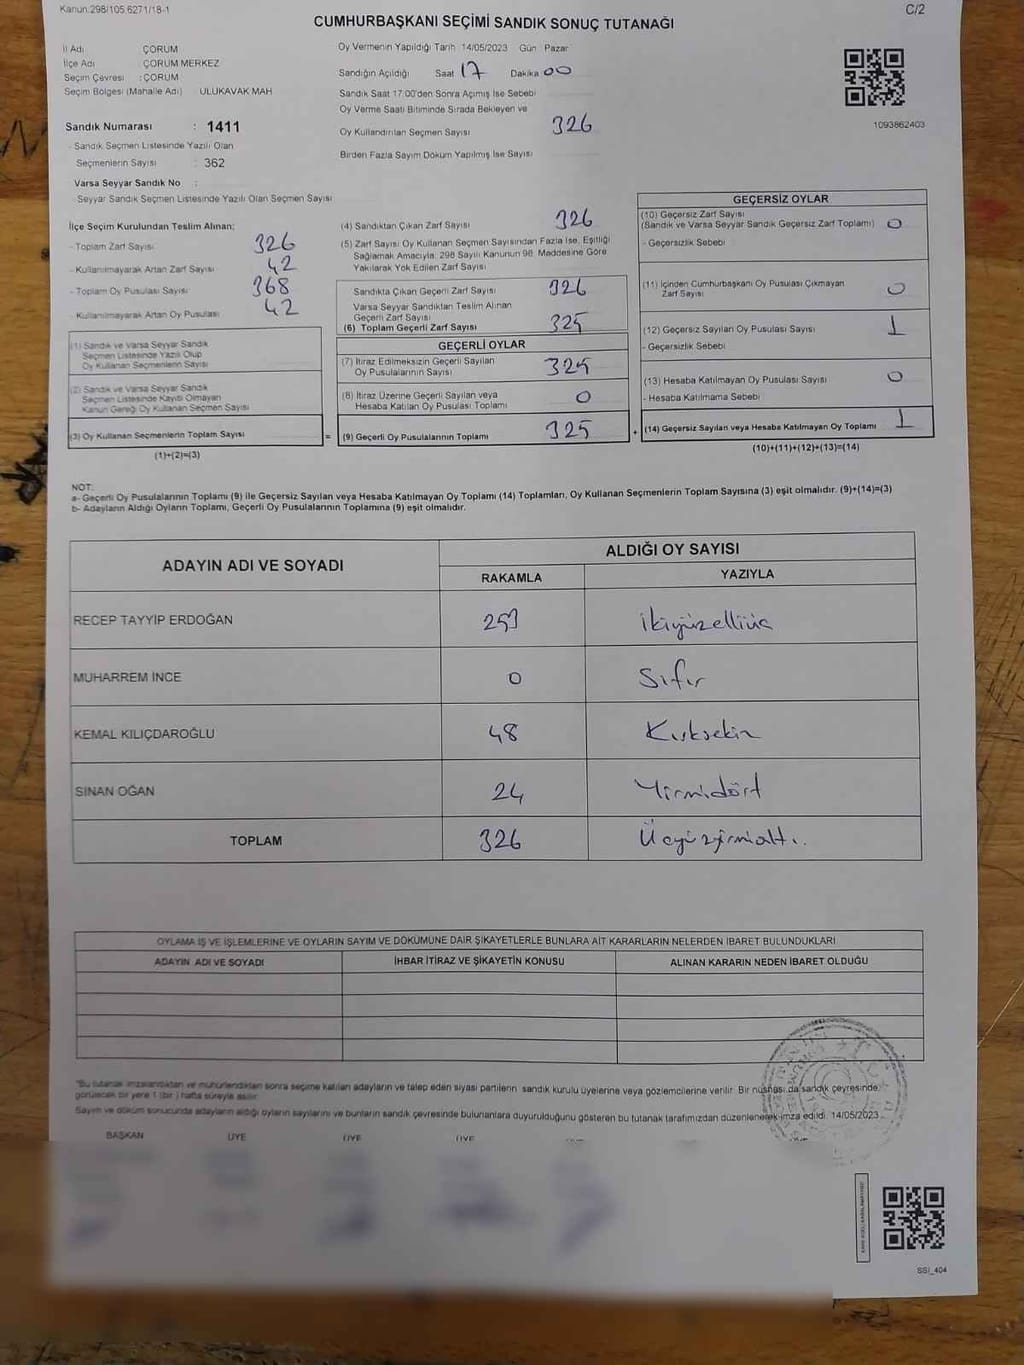 Kanun:298/105 6271/18-1
C/2
CUMHURBAŞKANI SEÇİMİ SANDIK SONUÇ TUTANAĞI
İl Adı ÇORUM
İlçe Adı ÇORUM MERKEZ
Seçim Çevresi :ÇORUM
Seçim Bölgesi (Mahalle Adı) ULUKAVAK MAH
Sandık Numarası : 1411
- Sandık Seçmen Listesinde Yazılı Olan
Seçmenlerin Sayısı : 362
Varsa Seyyar Sandık No :
- Seyyar Sandık Seçmen Listesinde Yazılı Olan Seçmen Sayısı
Oy Vermenin Yapıldığı Tarih 14/05/2023 Gün Pazar
Sandığın Açıldığı Saat 17 Dakika 00
Sandık Saat 17:00'den Sonra Açımış İse Sebebi
Oy Verme Saati Bitiminde Sırada Bekleyen ve
Oy Kullandırılan Seçmen Sayısı 326
Birden Fazla Sayım Döküm Yapılmış İse Sayısı
1093862403
İlçe Seçim Kurulundan Teslim Alınan;
- Toplam Zarf Sayısı 326
- Kullanılmayarak Artan Zarf Sayısı 42
- Toplam Oy Pusulası Sayısı 368
- Kullanılmayarak Artan Oy Pusulası 42
(1) Sandık ve Varsa Seyyar Sandık
Seçmen Listesinde Yazılı Olup
Oy Kullanan Seçmenlerin Sayısı
(2) Sandık ve Varsa Seyyar Sandık
Seçmen Listesinde Kaydı Olmayan
Kanun Gereği Oy Kullanan Seçmen Sayısı
(3) Oy Kullanan Seçmenlerin Toplam Sayısı =
(1)+(2)=(3)
(4) Sandıktan Çıkan Zarf Sayısı 326
(5) Zarf Sayısı Oy Kullanan Seçmen Sayısından Fazla İse, Eşitliği
Sağlamak Amacıyla, 298 Sayılı Kanunun 98. Maddesine Göre
Yakılarak Yok Edilen Zarf Sayısı
Sandıkta Çıkan Geçerli Zarf Sayısı 326
Varsa Seyyar Sandıktan Teslim Alınan
Geçerli Zarf Sayısı
(6) Toplam Geçerli Zarf Sayısı 325
GEÇERLİ OYLAR
(7) İtiraz Edilmeksizin Geçerli Sayılan
Oy Pusulalarının Sayısı 325
(8) İtiraz Üzerine Geçerli Sayılan veya
Hesaba Katılan Oy Pusulası Toplamı 0
(9) Geçerli Oy Pusulalarının Toplamı 325 +
GEÇERSİZ OYLAR
(10) Geçersiz Zarf Sayısı
(Sandık ve Varsa Seyyar Sandık Geçersiz Zarf Toplamı) 0
- Geçersizlik Sebebi
(11) İçinden Cumhurbaşkanı Oy Pusulası Çıkmayan
Zarf Sayısı 0
(12) Geçersiz Sayılan Oy Pusulası Sayısı 1
- Geçersizlik Sebebi
(13) Hesaba Katılmayan Oy Pusulası Sayısı 0
- Hesaba Katılmama Sebebi
(14) Geçersiz Sayılan veya Hesaba Katılmayan Oy Toplamı 1
(10)+(11)+(12)+(13)=(14)
NOT:
a- Geçerli Oy Pusulalarının Toplamı (9) ile Geçersiz Sayılan veya Hesaba Katılmayan Oy Toplamı (14) Toplamları, Oy Kullanan Seçmenlerin Toplam Sayısına (3) eşit olmalıdır. (9)+(14)=(3)
b- Adayların Aldığı Oyların Toplamı, Geçerli Oy Pusulalarının Toplamına (9) eşit olmalıdır.
ADAYIN ADI VE SOYADI ALDIĞI OY SAYISI
RAKAMLA YAZIYLA
RECEP TAYYİP ERDOĞAN 253 ikiyüzelliüç
MUHARREM İNCE 0 Sıfır
KEMAL KILIÇDAROĞLU 48 Kırksekiz
SİNAN OĞAN 24 Yirmidört
TOPLAM 326 Üçyüzyirmialtı.
OYLAMA İŞ VE İŞLEMLERİNE VE OYLARIN SAYIM VE DÖKÜMÜNE DAİR ŞİKAYETLERLE BUNLARA AİT KARARLARIN NELERDEN İBARET BULUNDUKLARI
ADAYIN ADI VE SOYADI İHBAR İTİRAZ VE ŞİKAYETİN KONUSU ALINAN KARARIN NEDEN İBARET OLDUĞU
"Bu tutanak imzalandıktan ve mühürlendikten sonra seçime katılan adayların ve talep eden siyasi partilerin sandık kurulu üyelerine veya gözlemcilerine verilir. Bir nüshası da sandık çevresinde
görülecek bir yere 1 (bir) hafta süreyle asılır.
Sayım ve döküm sonucunda adayların aldığı oyların sayılarını ve bunların sandık çevresinde bulunanlara duyurulduğunu gösteren bu tutanak tarafımızdan düzenlenerek imza edildi. 14/05/2023
BAŞKAN ÜYE ÜYE ÜYE
SSİ_404